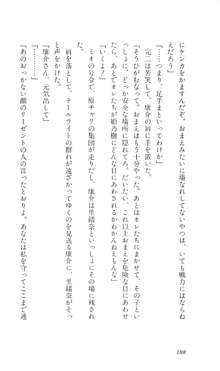 にケンカをかますんだぞ。おまえみたいに場なれしてないやつは、いても戦力にはならね
えだろう」
「……つまり、足手まといってわけか」
完二は苦笑して、康介の肩に手を置いた。
「そうひがむなよ。おまえはもう十分やった。あとはオレたちが姫乃樹にかわって、その子とい
っしょに、どっか安全な場所に隠れてろ。だいたい、これ以上おまえを危険な目にあわせ
たら、あとでオレたちが姫乃樹にどんな目にあわされるかわかんねえもんな」
「いくよ！」
ミオの号令で、原チャリの集団が走りだし、康介は里緒奈といっしょにその場に残され
た。
肩を落として、テールライトの群れが遠ざかってゆくのを見送る康介に、里緒奈がそっ
と声をかけた。
「康介さん、元気出して」
「………」
「あのおっかない顔のリーゼントの人の言ったとおりよ。あなたは私を守ってここまで連
188